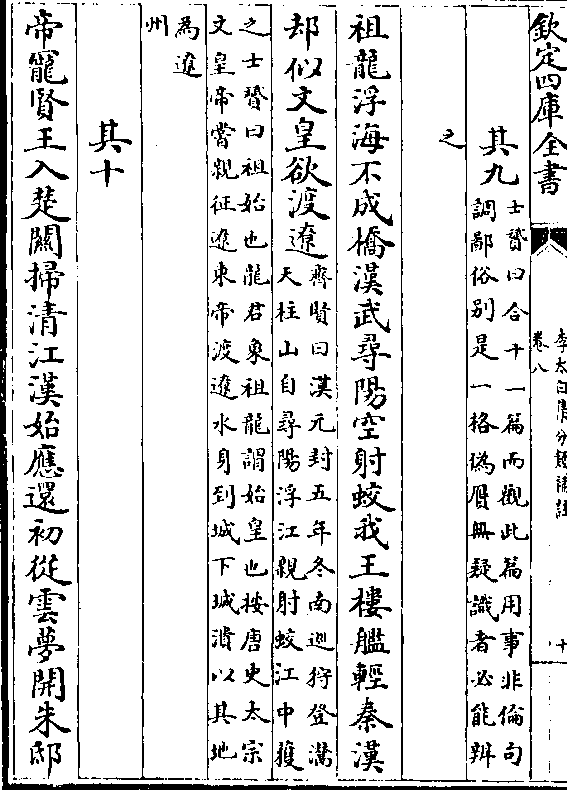 欽定四庫全書
李太白集分類補註
卷八
十
其九
士贇曰合十一篇而觀此篇用事非倫句
調鄙俗別是一格偽贗無疑識者必能辨
之
祖龍浮海不成橋漢武尋陽空射蛟我王樓艦輕秦漢
却似文皇欲渡遼
齊賢曰漢元封五年冬南巡狩登灊
天柱山自尋陽浮江親射蛟江中獲
之士贇曰祖始也龍君象祖龍謂始皇也按唐史太宗
文皇帝嘗親征遼東帝渡遼水身到城下城潰以其地
為遼
州
其十
帝寵賢王入楚關掃清江漢始應還初從雲夢開朱邸